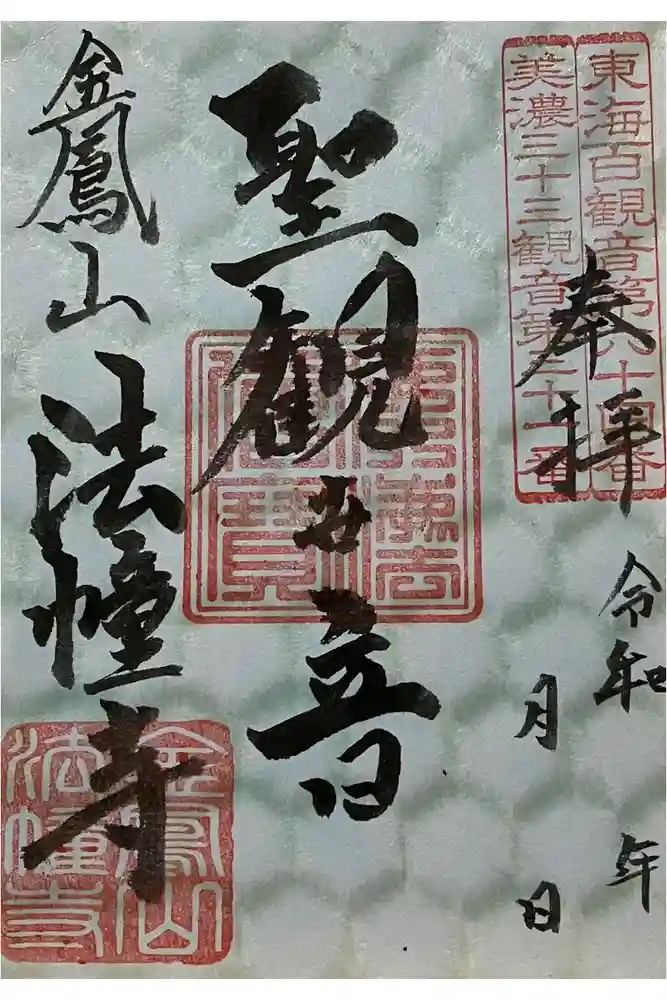 東海百観音第六十四番
美濃三十三観音第三十一番
奉拝
令和 年
月 日
聖観世音
金鳳山 法幢寺
佛法僧寶
金鳳山
法幢寺